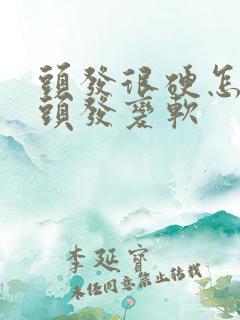 頭發很硬怎
頭發變軟
李延寶
未经同意禁止转载